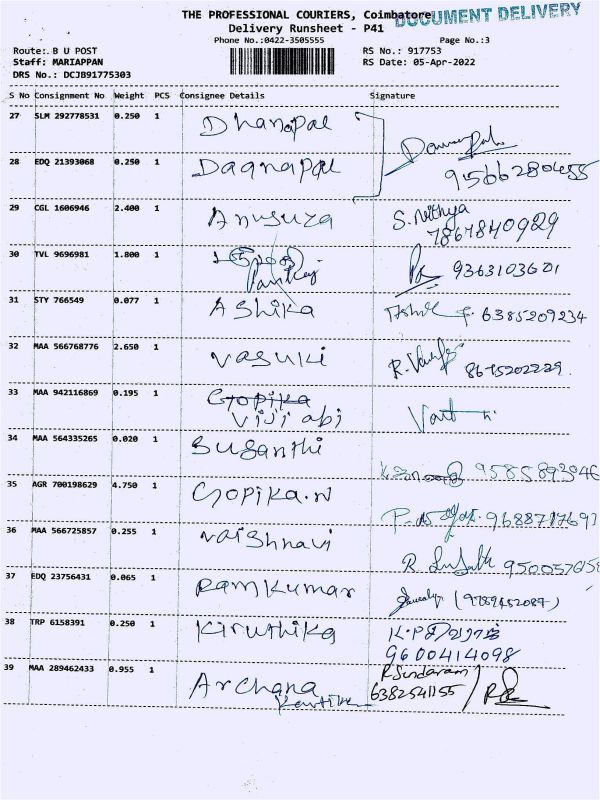 THE PROFESSIONAL COURIERS, Coimbatore
DOCUMENT DELIVERY
Delivery Runsheet - P41
Phone No.:0422-3505555 Page No.:3
Route:.B U POST RS No.: 917753
Staff: MARIAPPAN RS Date: 05-Apr-2022
DRS No.: DCJB91775303
S No Consignment No Weight PCS Consignee Details Signature
27 SLM 292778531 0.250 1 Dhanapal
28 EDQ 21393068 0.250 1 Dagnapal
9566280455
29 CGL 1606946 2.400 1 Anusuza S. Nithya
7867840929
30 TVL 9696981 1.800 1
Pankaj 9363103601
31 STY 766549 0.077 1 AShika 6385209234
32 MAA 566768776 2.650 1 vasuki 8675202229
33 MAA 942116869 0.195 1 Gopika
Viji abi
34 MAA 564335265 0.020 1 Suganthi
9585893946
35 AGR 700198629 4.750 1 Gopika.N
9688717697
36 MAA 566725857 0.255 1 vaishnavi
37 EDQ 23756431 0.065 1 Ramkumar (9789452087)
38 TRP 6158391 0.250 1 Kiruthika
9600414098
39 MAA 289462433 0.955 1 Archana R Sundaram
6382541155